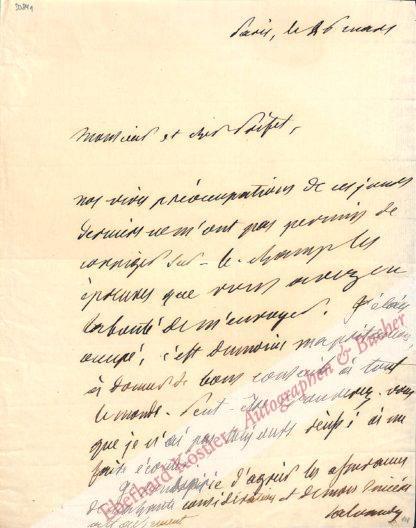 30849
Paris, le 26 mars
Monsieur et cher Préfet,
nos vives préoccupations de ces jours
derniers ne m'ont pas permis de
corriger sur-le-champ les
épreuves que vous avez eu
la bonté de m'envoyer. J'étais
occupé, c'est du moins ma prétention
à donner de bons conseils à tout
le monde. Peut-être trouverez-vous
que je n'ai pas réussi à me
faire écouter.
d'agréer les assurances
de considération et de mon sincère
Salvandy
Eberhard Köstler Autographen & Bücher